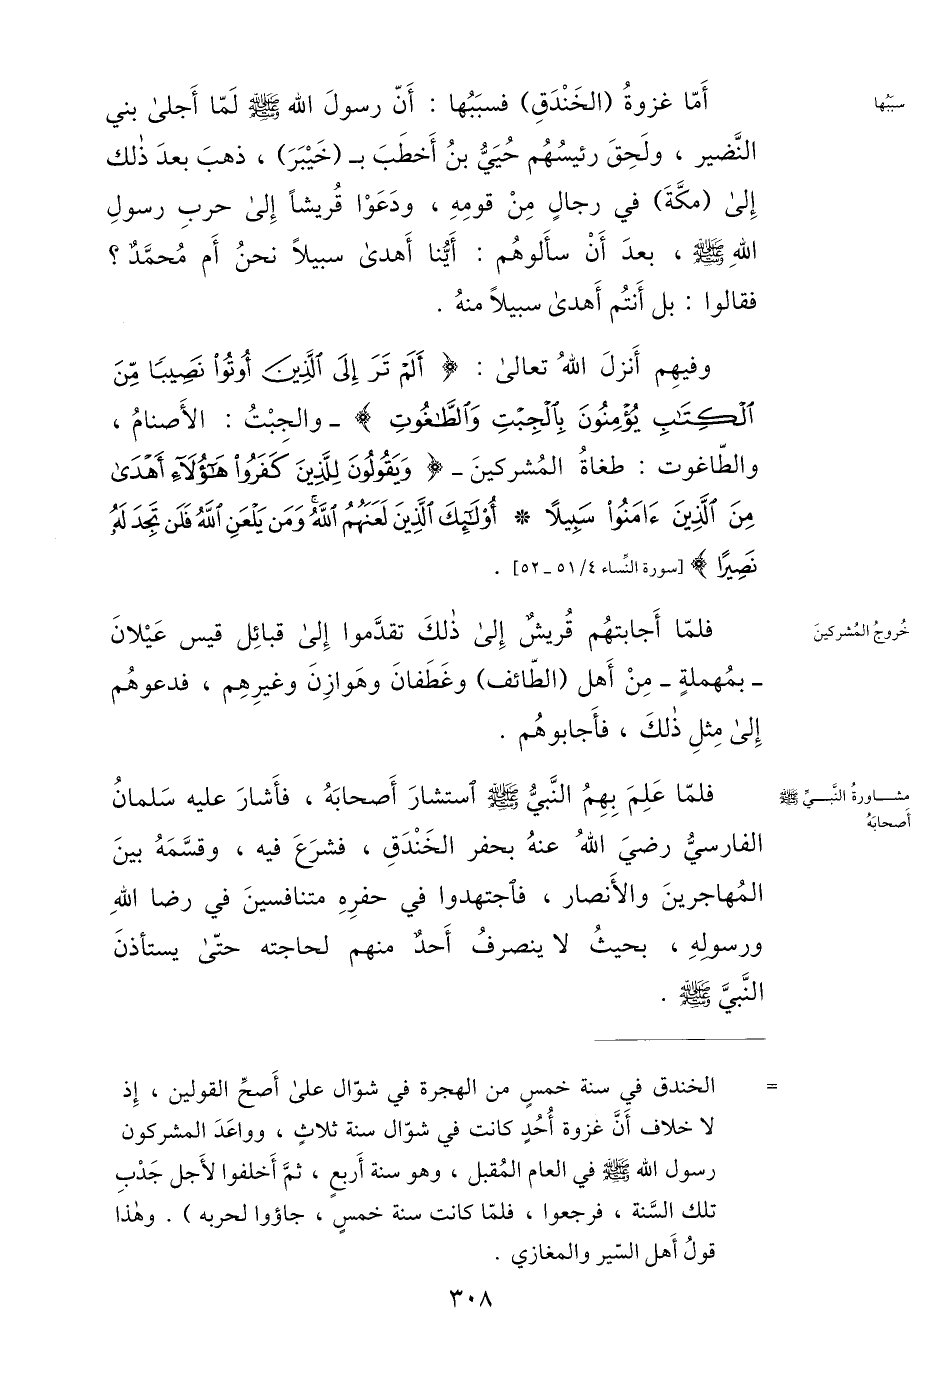 سببُها
أَمّا غزوةُ (الخَنْدَقِ) فسببُها : أَنّ رسولَ الله ﷺ لَمّا أَجلىٰ بني
النَّضير ، ولَحِقَ رئيسُهُم حُيَيُّ بنُ أَخطَبَ بـ (خَيْبَرَ) ، ذهبَ بعدَ ذٰلك
إِلىٰ (مكَّةَ) في رجالٍ مِنْ قومِهِ ، ودَعَوْا قُريشاً إِلىٰ حربِ رسولِ
اللهِ ﷺ ، بعدَ أَنْ سأَلوهُم : أَيُّنا أَهدىٰ سبيلاً نحنُ أَم مُحمَّدٌ ؟
فقالوا : بل أَنتُم أَهدىٰ سبيلاً منهُ .
وفيهِم أَنزلَ اللهُ تعالىٰ : ﴿ أَلَمْ تَرَ إِلَى ٱلَّذِينَ أُوتُوا۟ نَصِيبًا مِّنَ
ٱلْكِتَٰبِ يُؤْمِنُونَ بِٱلْجِبْتِ وَٱلطَّٰغُوتِ ﴾ ـ والجِبْتُ : الأَصنامُ ،
والطّاغوت : طغاةُ المُشركينَ ـ ﴿ وَيَقُولُونَ لِلَّذِينَ كَفَرُوا۟ هَٰٓؤُلَآءِ أَهْدَىٰ
مِنَ ٱلَّذِينَ ءَامَنُوا۟ سَبِيلًا * أُو۟لَٰٓئِكَ ٱلَّذِينَ لَعَنَهُمُ ٱللَّهُ ۖ وَمَن يَلْعَنِ ٱللَّهُ فَلَن تَجِدَ لَهُۥ
نَصِيرًا ﴾ [سورة النِّساء ٤/ ٥١ ـ ٥٢] .
خُروجُ المُشركينَ
فلمّا أَجابتهُم قُريشٌ إِلىٰ ذٰلكَ تقدَّموا إِلىٰ قبائِل قيس عَيْلانَ
ـ بمُهملةٍ ـ مِنْ أَهل (الطّائف) وغَطَفانَ وهَوازِنَ وغيرِهِم ، فدعوهُم
إِلىٰ مِثلِ ذٰلكَ ، فأَجابوهُم .
مشـاورةُ النَّبـيِّ ﷺ
أَصحابَهُ
فلمّا عَلِمَ بِهِمُ النَّبيُّ ﷺ ٱستشارَ أَصحابَهُ ، فأَشارَ عليه سَلمانُ
الفارسيُّ رضيَ اللهُ عنهُ بحفر الخَنْدَقِ ، فشرَعَ فيه ، وقسَّمَهُ بينَ
المُهاجرينَ والأَنصار ، فٱجتهدوا في حفرِهِ متنافسينَ في رضا اللهِ
ورسولِهِ ، بحيثُ لا ينصرفُ أَحدٌ منهم لحاجته حتّىٰ يستأذنَ
النَّبيَّ ﷺ .
= الخندق في سنة خمسٍ من الهجرة في شوّال علىٰ أَصحِّ القولين ، إِذ
لا خلاف أَنَّ غزوة أُحُدٍ كانت في شوّال سنة ثلاثٍ ، وواعَدَ المشركون
رسول الله ﷺ في العام المُقبل ، وهو سنة أَربعٍ ، ثمَّ أَخلفوا لأَجل جَدْبِ
تلك السَّنة ، فرجعوا ، فلمّا كانت سنة خمسٍ ، جاؤوا لحربه ) . وهٰذا
قولُ أَهل السّير والمغازي .
٣٠٨